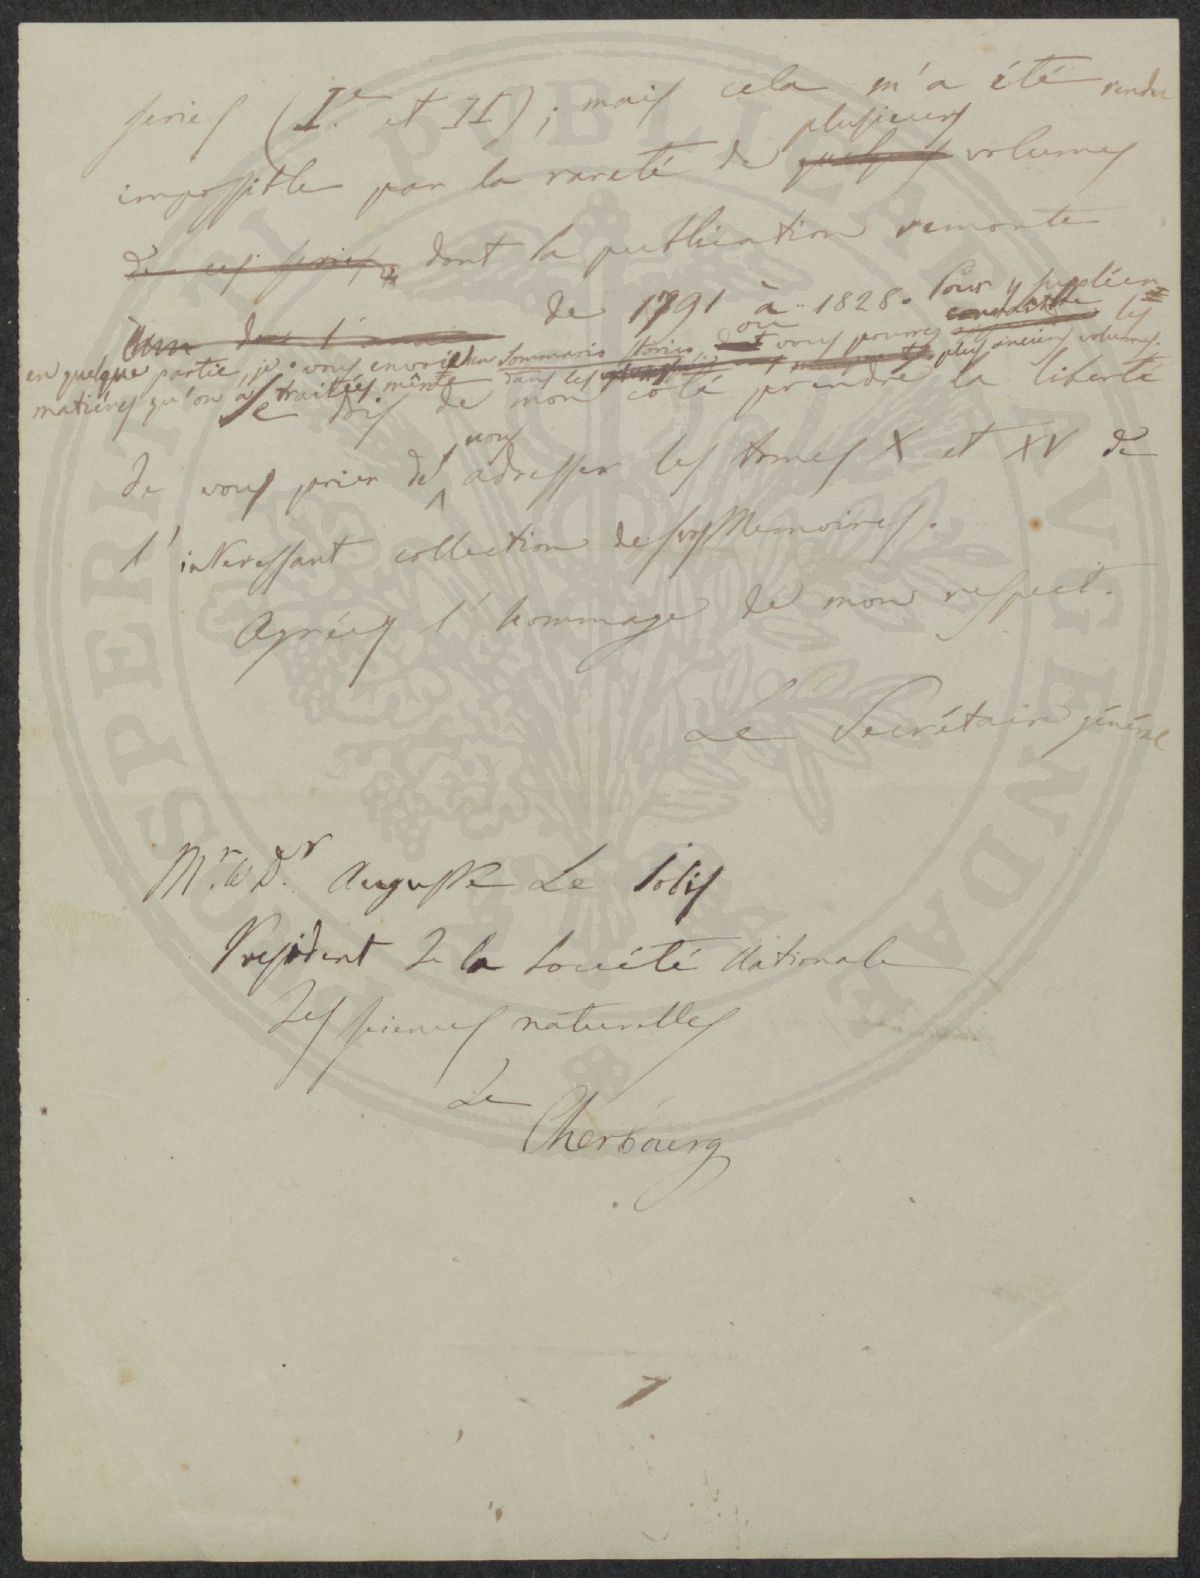 series (I.e et II); mais cela m'a été rendu
impossible par la rareté de plusieurs volumes
de ces series, dont la publication remonte
de 1791 à 1828. Pour y supléer
en quelque partie, je vous envoie un Sommario storico, où vous pourrez les
matiéres qu'on a traitées même dans les plus anciens volumes.
Je dois de mon côté prendre la liberté
de vous prier de nous adresser les tomes X et XV de
l'interessant collection de vos Memoires.
Agréez l'hommage de mon respect.
Le Secrétaire général
Mr. le Dr. Auguste Le Jolis
President de la Société Nationale
des sciences naturelles
de
Cherbourg
PROSPERITATI PVBLICAE AVGENDAE